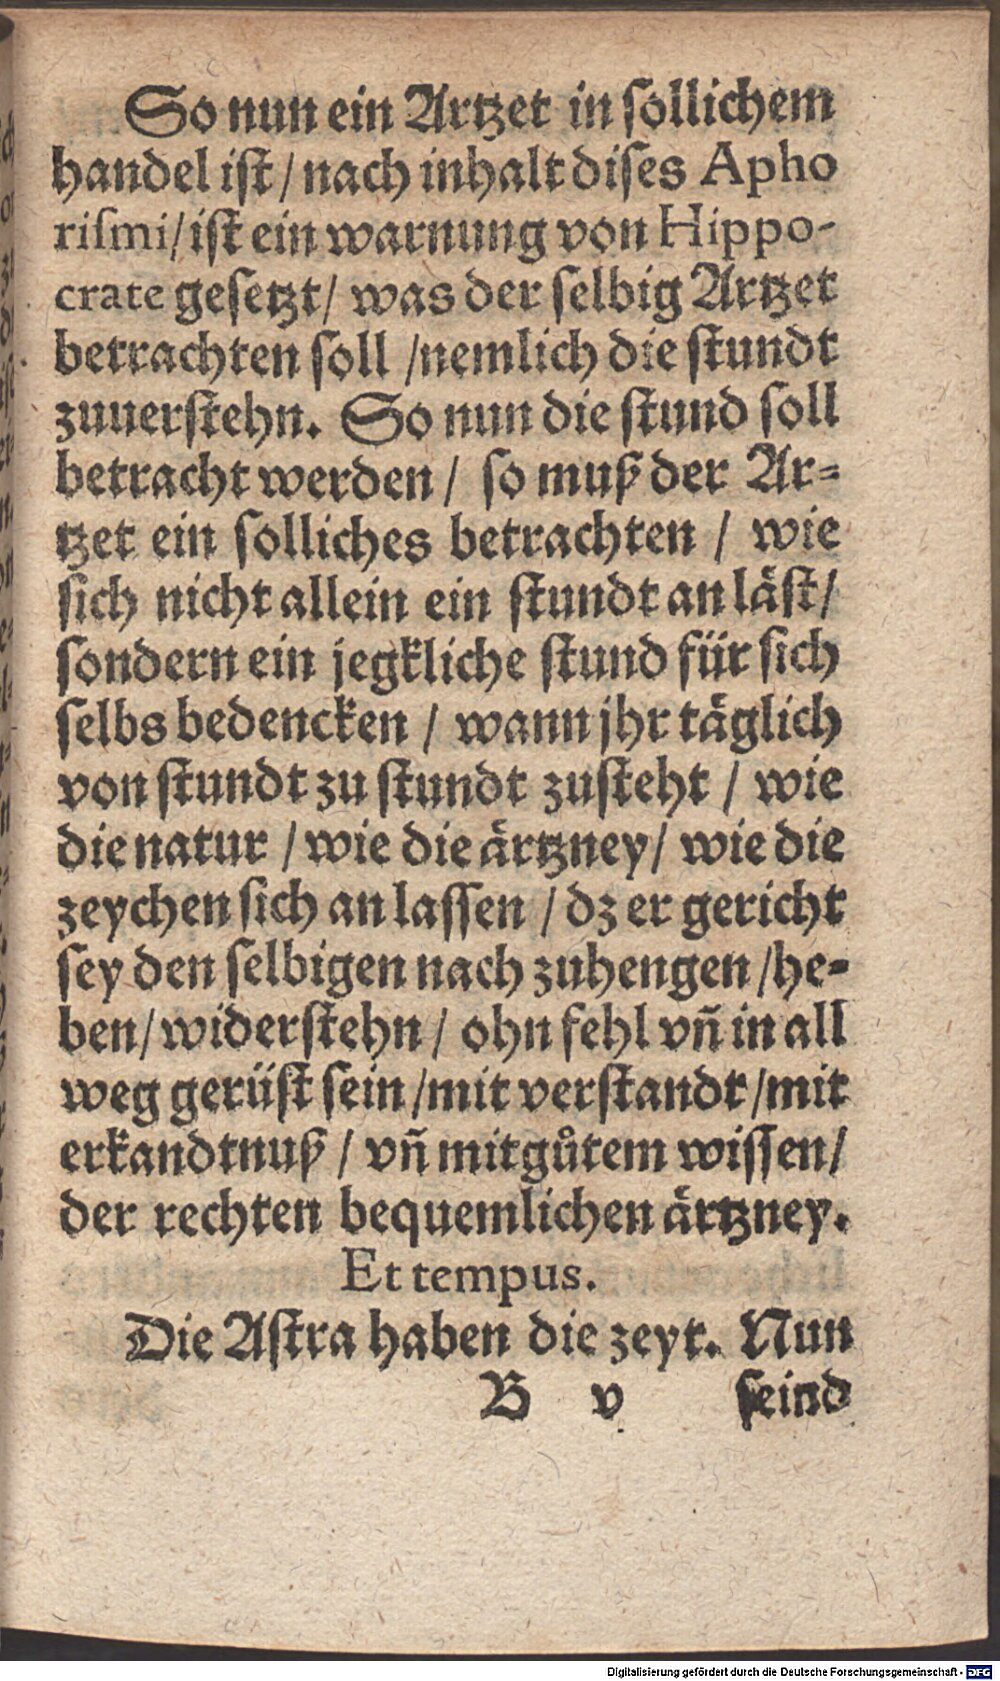 So nun ein Artzet in ſollichem
handel iſt / nach inhalt diſes Apho
riſmi / iſt ein warnung von Hippo-
crate geſetzt / was der ſelbig Artzet
betrachten ſoll / nemlich die ſtundt
zuuerſtehn. So nun die ſtund ſoll
betracht werden / ſo muß der Ar-
tzet ein ſolliches betrachten / wie
ſich nicht allein ein ſtundt an läſt /
ſondern ein jegkliche ſtund für ſich
ſelbs bedencken / wann jhr täglich
von ſtundt zu ſtundt zuſteht / wie
die natur / wie die ärtzney / wie die
zeychen ſich an laſſen / dz er gericht
ſey den ſelbigen nach zuhengen / he-
ben / widerſtehn / ohn fehl vñ in all
weg gerüſt ſein / mit verſtandt / mit
erkandtnuß / vñ mit gůtem wiſſen /
der rechten bequemlichen ärtzney.
Et tempus.
Die Aſtra haben die zeyt. Nun
B v ſeind
Digitalisierung gefördert durch die Deutsche Forschungsgemeinschaft - DFG